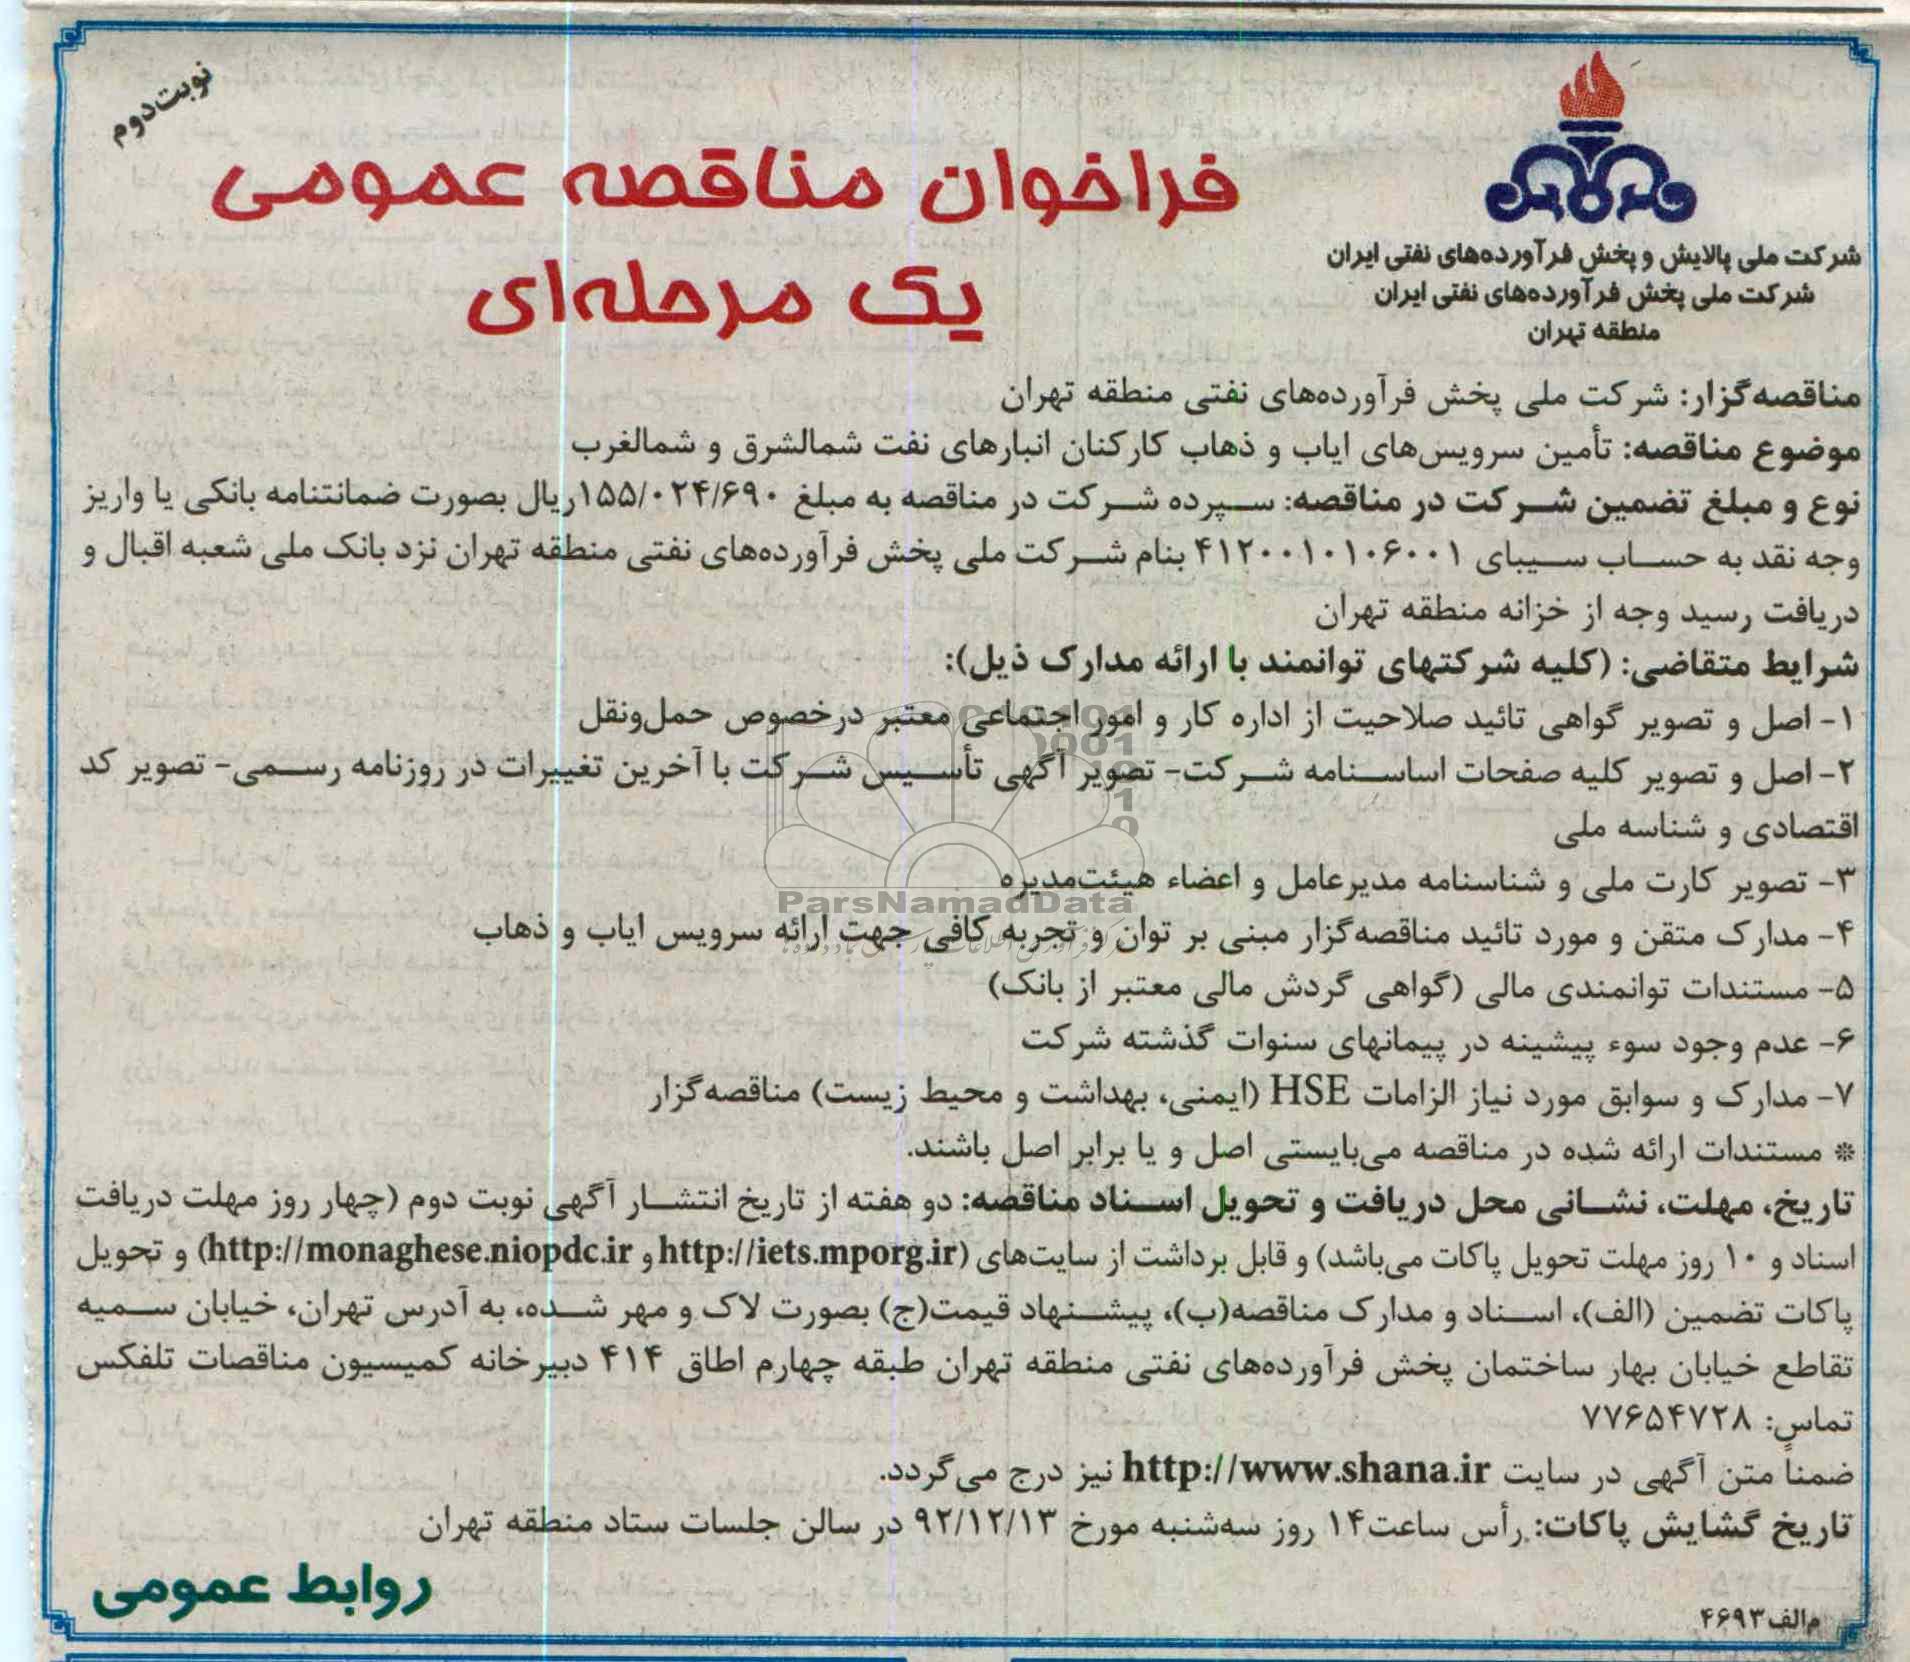 نوبت دوم
شرکت ملی پالایش و پخش فرآورده‌های نفتی ایران
شرکت ملی پخش فرآورده‌های نفتی ایران
منطقه تهران
فراخوان مناقصه عمومی
یک مرحله‌ای
مناقصه‌گزار: شرکت ملی پخش فرآورده‌های نفتی منطقه تهران
موضوع مناقصه: تأمین سرویس‌های ایاب و ذهاب کارکنان انبارهای نفت شمالشرق و شمالغرب
نوع و مبلغ تضمین شرکت در مناقصه: سپرده شرکت در مناقصه به مبلغ ۱۵۵/۰۲۴/۶۹۰ریال بصورت ضمانتنامه بانکی یا واریز
وجه نقد به حساب سیبای ۴۱۲۰۰۱۰۱۰۶۰۰۱ بنام شرکت ملی پخش فرآورده‌های نفتی منطقه تهران نزد بانک ملی شعبه اقبال و
دریافت رسید وجه از خزانه منطقه تهران
شرایط متقاضی: (کلیه شرکتهای توانمند با ارائه مدارک ذیل):
۱- اصل و تصویر گواهی تائید صلاحیت از اداره کار و امور اجتماعی معتبر درخصوص حمل‌ونقل
۲- اصل و تصویر کلیه صفحات اساسنامه شرکت- تصویر آگهی تأسیس شرکت با آخرین تغییرات در روزنامه رسمی- تصویر کد
اقتصادی و شناسه ملی
۳- تصویر کارت ملی و شناسنامه مدیرعامل و اعضاء هیئت‌مدیره
ParsNamadData
۴- مدارک متقن و مورد تائید مناقصه‌گزار مبنی بر توان و تجربه کافی جهت ارائه سرویس ایاب و ذهاب
۵- مستندات توانمندی مالی (گواهی گردش مالی معتبر از بانک)
۶- عدم وجود سوء پیشینه در پیمانهای سنوات گذشته شرکت
۷- مدارک و سوابق مورد نیاز الزامات HSE (ایمنی، بهداشت و محیط زیست) مناقصه‌گزار
* مستندات ارائه شده در مناقصه می‌بایستی اصل و یا برابر اصل باشند.
تاریخ، مهلت، نشانی محل دریافت و تحویل اسناد مناقصه: دو هفته از تاریخ انتشار آگهی نوبت دوم (چهار روز مهلت دریافت
اسناد و ۱۰ روز مهلت تحویل پاکات می‌باشد) و قابل برداشت از سایت‌های (http://iets.mporg.ir و http://monaghese.niopdc.ir) و تحویل
پاکات تضمین (الف)، اسناد و مدارک مناقصه(ب)، پیشنهاد قیمت(ج) بصورت لاک و مهر شده، به آدرس تهران، خیابان سمیه
تقاطع خیابان بهار ساختمان پخش فرآورده‌های نفتی منطقه تهران طبقه چهارم اطاق ۴۱۴ دبیرخانه کمیسیون مناقصات تلفکس
تماس: ۷۷۶۵۴۷۲۸
ضمناً متن آگهی در سایت http://www.shana.ir نیز درج می‌گردد.
تاریخ گشایش پاکات: رأس ساعت۱۴ روز سه‌شنبه مورخ ۹۲/۱۲/۱۳ در سالن جلسات ستاد منطقه تهران
روابط عمومی
م‌الف۴۶۹۳